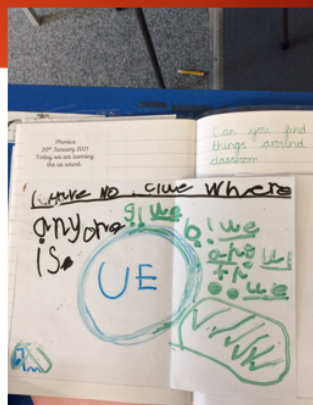 Phonics
20th January 2021
Today we are learning
the ue sound.
Can you find
things around
classroom
I have no clue where
anyone
is.
glue
blue
UE
true